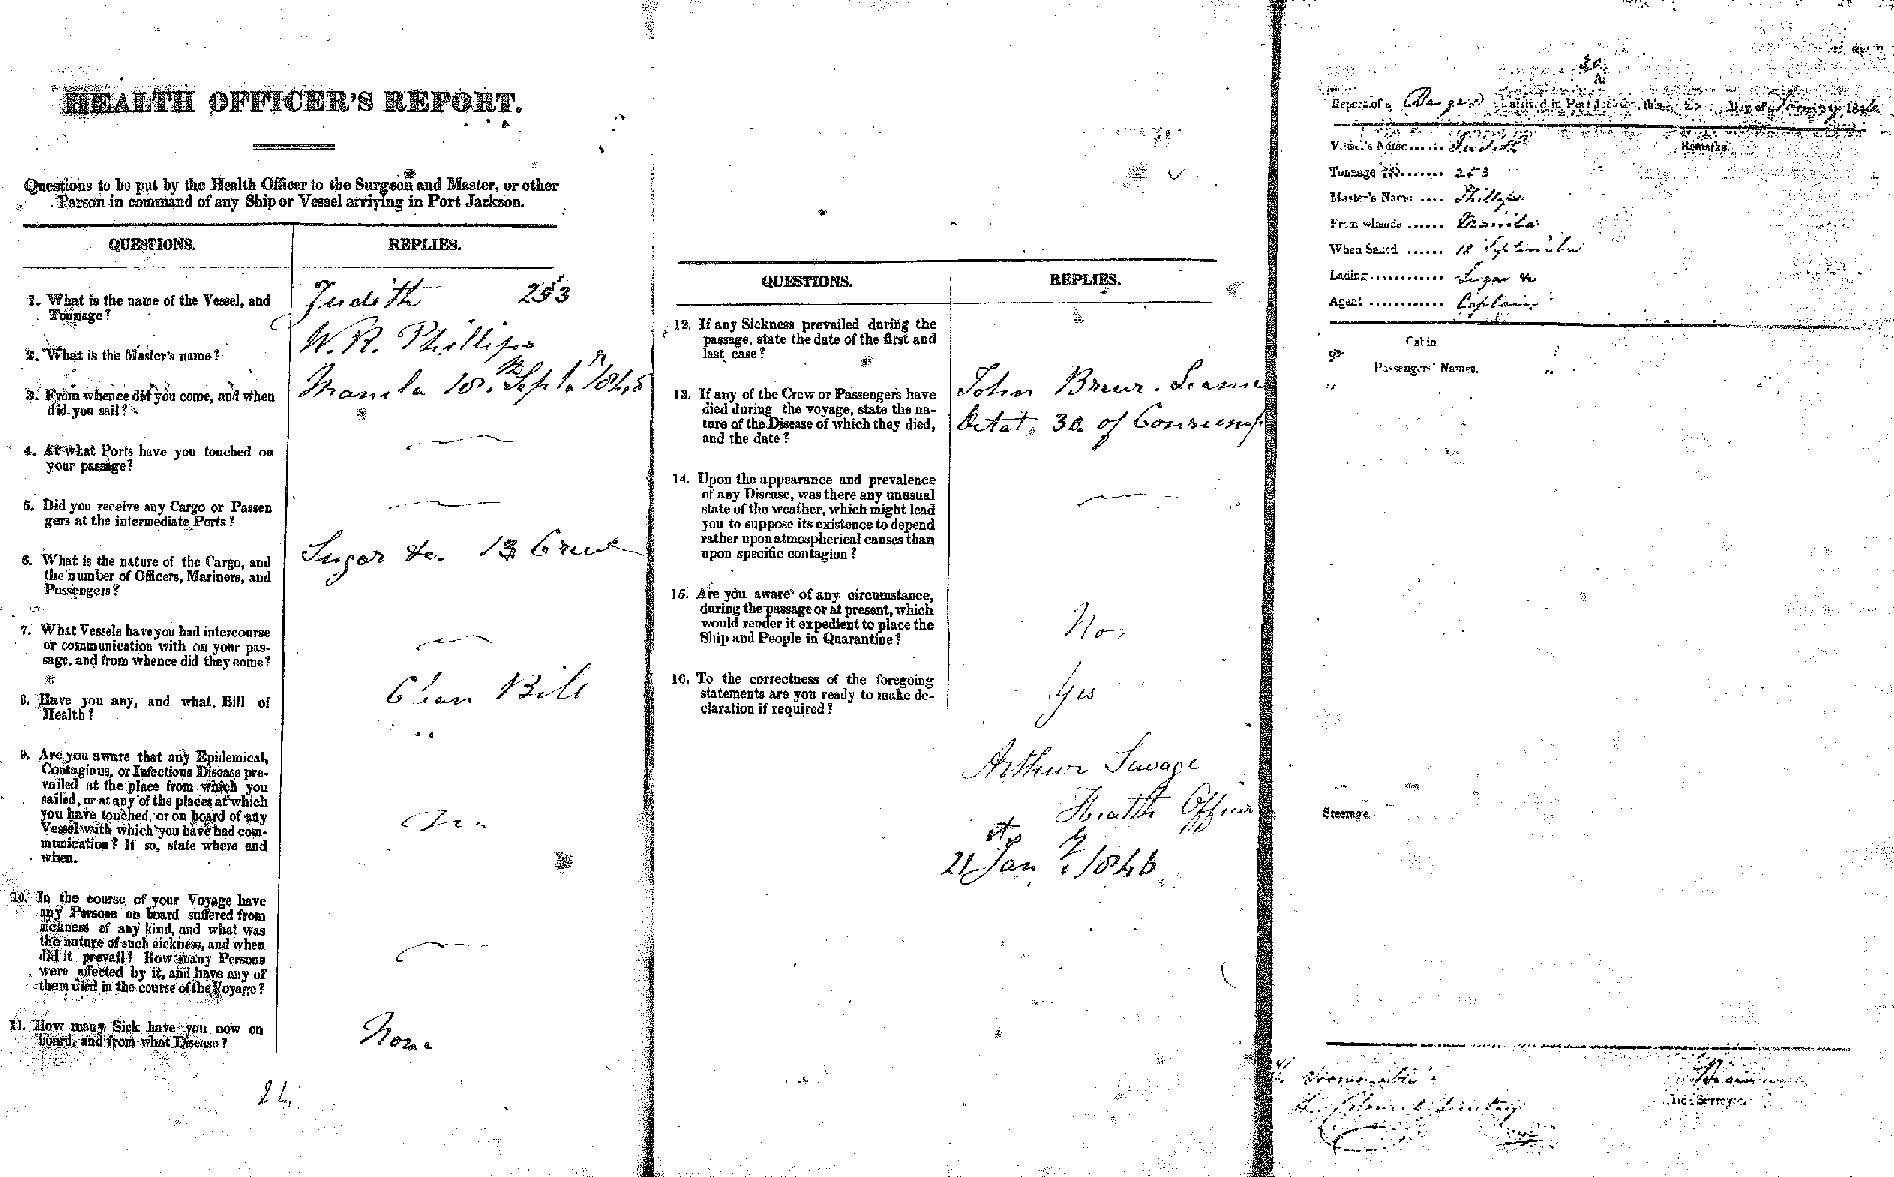 HEALTH OFFICER'S REPORT.
Questions to be put by the Health Officer to the Surgeon and Master, or other
Person in command of any Ship or Vessel arriving in Port Jackson.
QUESTIONS. REPLIES.
1. What is the name of the Vessel, and
Tonnage?
Judith 253
2. What is the Master's name?
W. R. Phillips
3. From whence did you come, and when
did you sail?
Manila 18th Septr 1845
4. At what Ports have you touched on
your passage?
5. Did you receive any Cargo or Passen
gers at the intermediate Ports?
6. What is the nature of the Cargo, and
the number of Officers, Mariners, and
Passengers?
Sugar &c. 13 Crew
7. What Vessels have you had intercourse
or communication with on your pas-
sage, and from whence did they come?
8. Have you any, and what, Bill of
Health?
Clean Bill
9. Are you aware that any Epidemical,
Contagious, or Infectious Disease pre-
vailed at the place from which you
sailed, or at any of the places at which
you have touched, or on board of any
Vessel with which you have had com-
munication? If so, state where and
when.
10. In the course of your Voyage have
any Persons on board suffered from
sickness of any kind, and what was
the nature of such sickness, and when
did it prevail? How many Persons
were affected by it, and have any of
them died in the course of the Voyage?
11. How many Sick have you now on
board, and from what Disease?
None
QUESTIONS. REPLIES.
12. If any Sickness prevailed during the
passage, state the date of the first and
last case?
13. If any of the Crew or Passengers have
died during the voyage, state the na-
ture of the Disease of which they died,
and the date?
John Brewr. Seama
Octat. 30 of Consump
14. Upon the appearance and prevalence
of any Disease, was there any unusual
state of the weather, which might lead
you to suppose its existence to depend
rather upon atmospherical causes than
upon specific contagion?
15. Are you aware of any circumstance,
during the passage or at present, which
would render it expedient to place the
Ship and People in Quarantine?
No
16. To the correctness of the foregoing
statements are you ready to make de-
claration if required?
Yes
Arthur Savage
Health Officer
21st Jany 1846
Report of a Barque arrived in Port Jackson, this day of January 1846
Vessel's Name...... Judith
Remarks.
Tonnage ......... 253
Master's Name .... Phillips
From whence ...... Manila
When Sailed ...... 18 September
Lading........... Sugar &c
Agent ........... Captain
Cabin
Passengers' Names.
Steerage